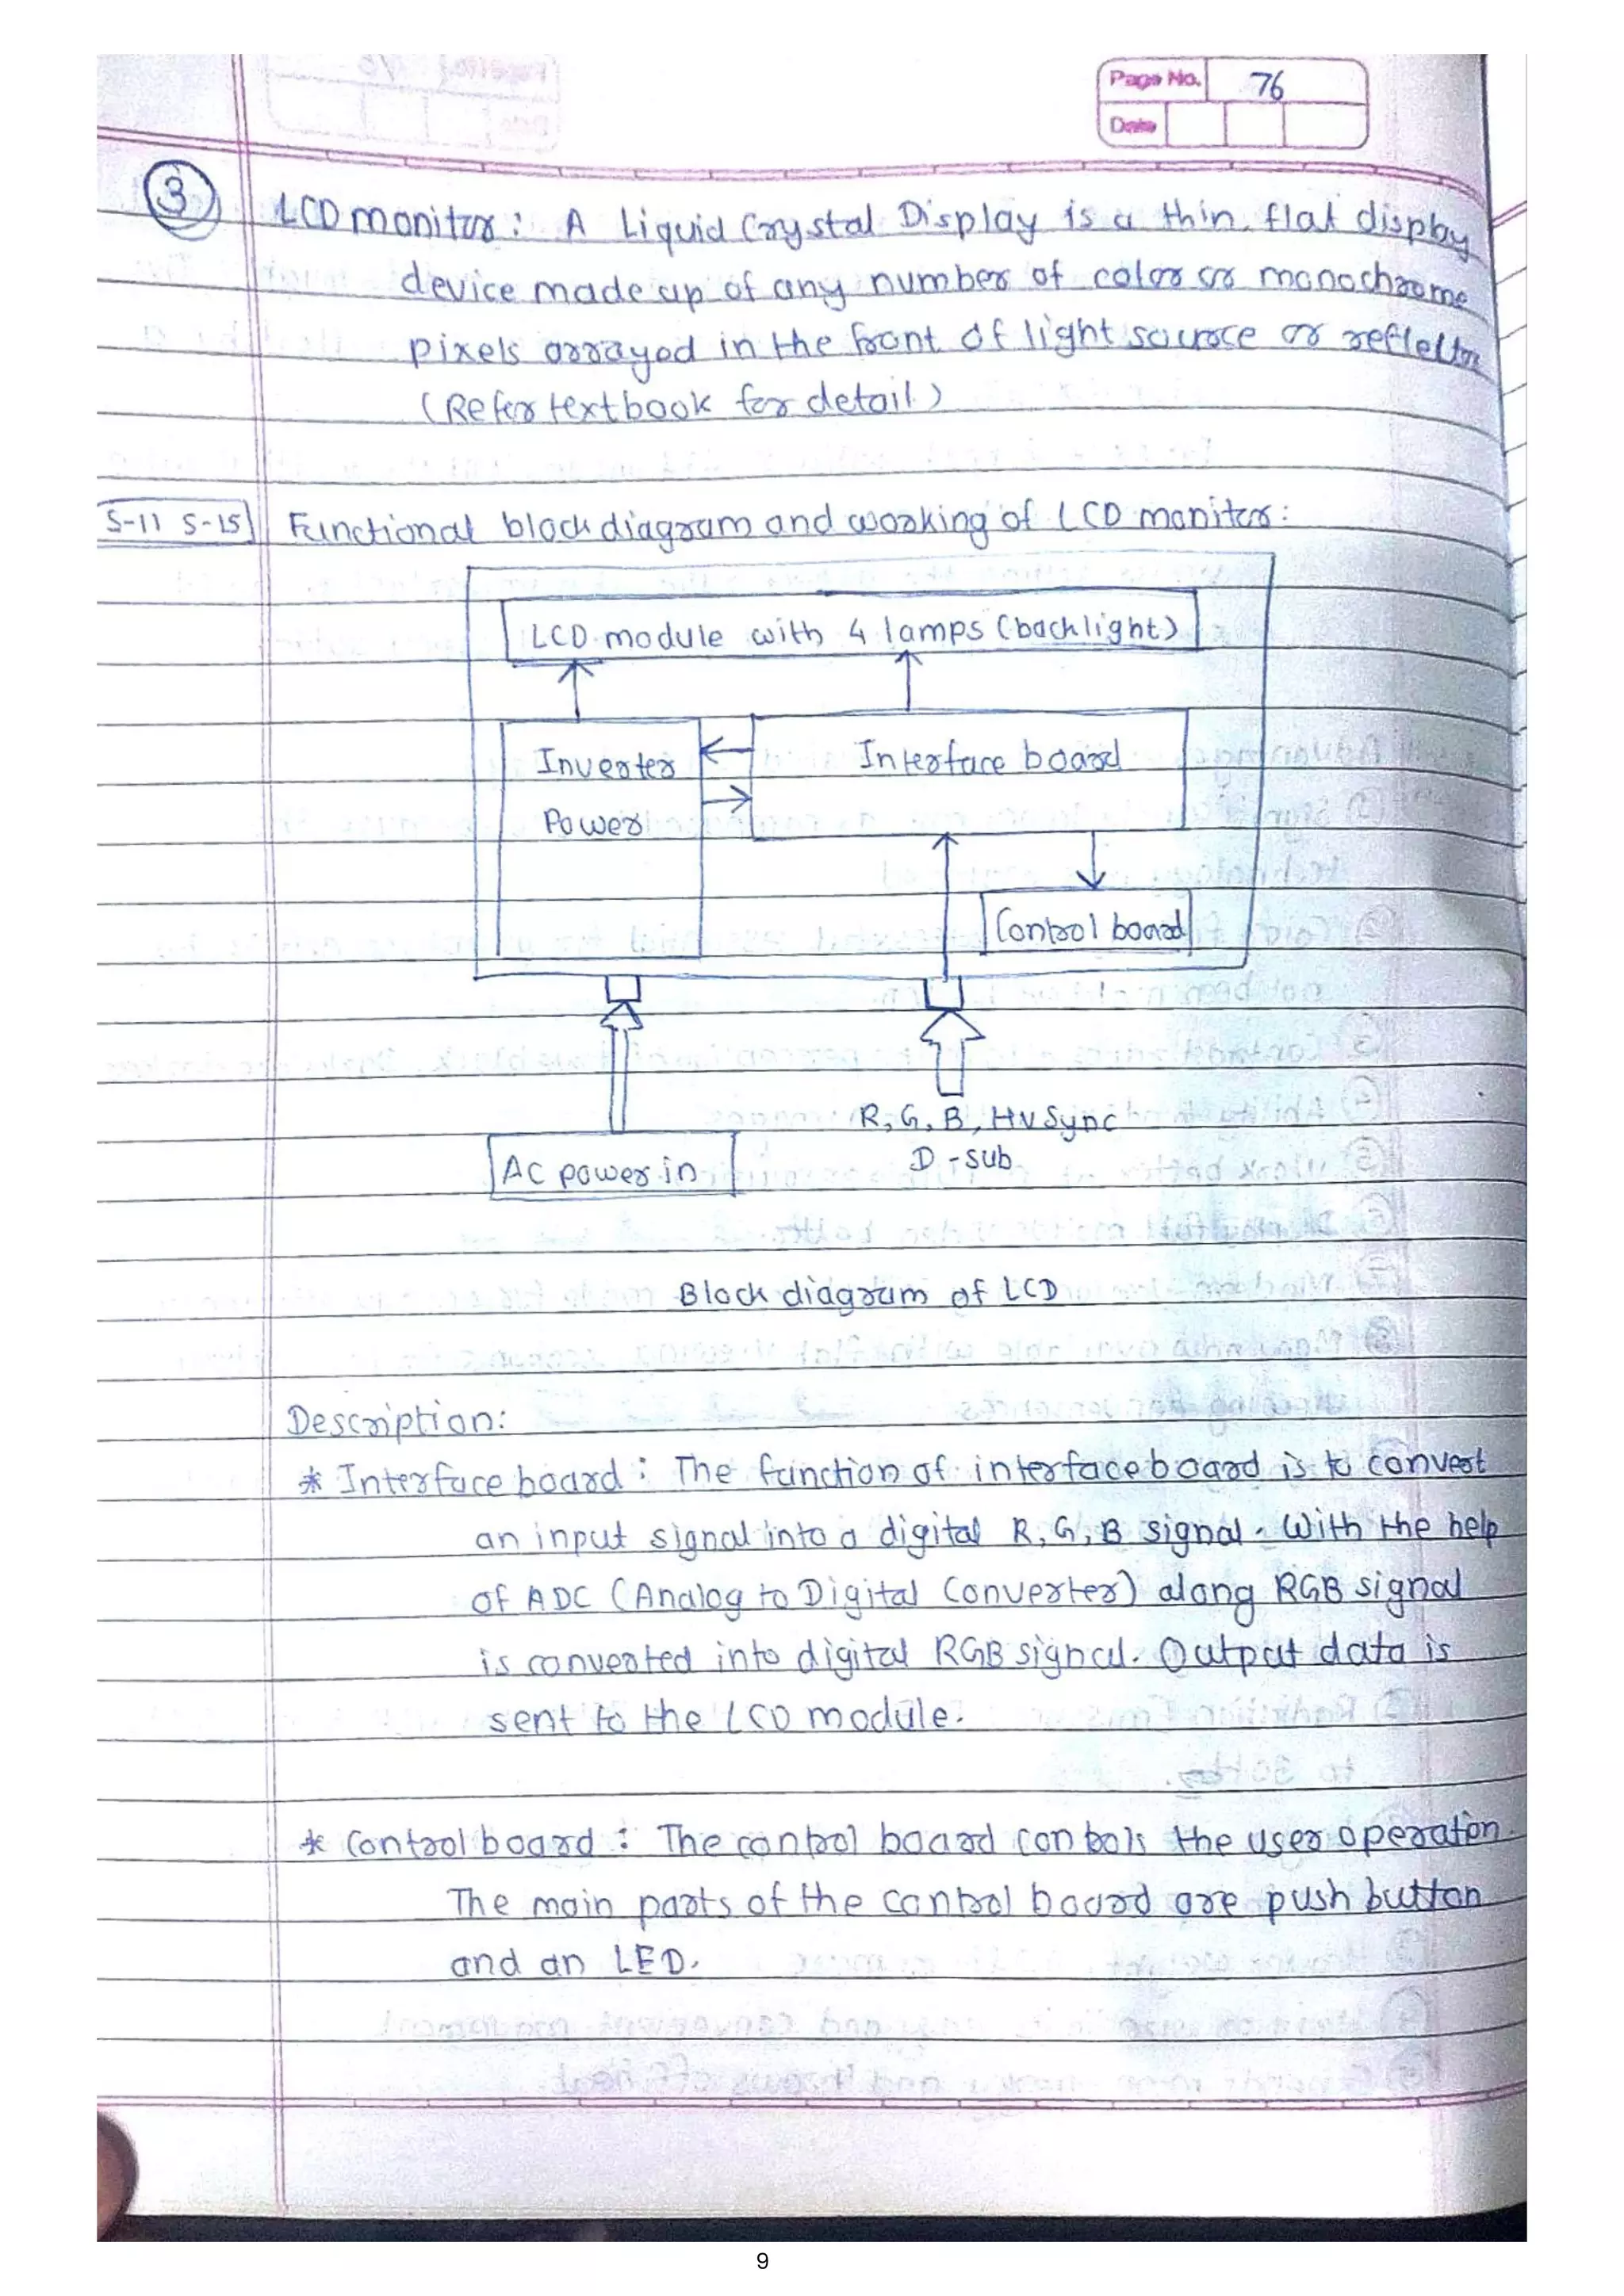 Page No. 76
Date
③ LCD monitor : A Liquid Crystal Display is a thin, flat display
device made up of any number of color or monochrome
pixels arrayed in the front of light source or reflector
(Refer textbook for detail)
S-11 S-15 Functional block diagram and working of LCD monitor :
LCD module with 4 lamps (backlight)
Inverter Interface board
Power
Control board
R, G, B, HV Sync
AC power in D-sub
Block diagram of LCD
Description:
* Interface board : The function of interface board is to convert
an input signal into a digital R, G, B signal. With the help
of ADC (Analog to Digital Converter) along RGB signal
is converted into digital RGB signal. Output data is
sent to the LCD module.
* Control board : The control board controls the user operation.
The main parts of the control board are push button
and an LED.
9